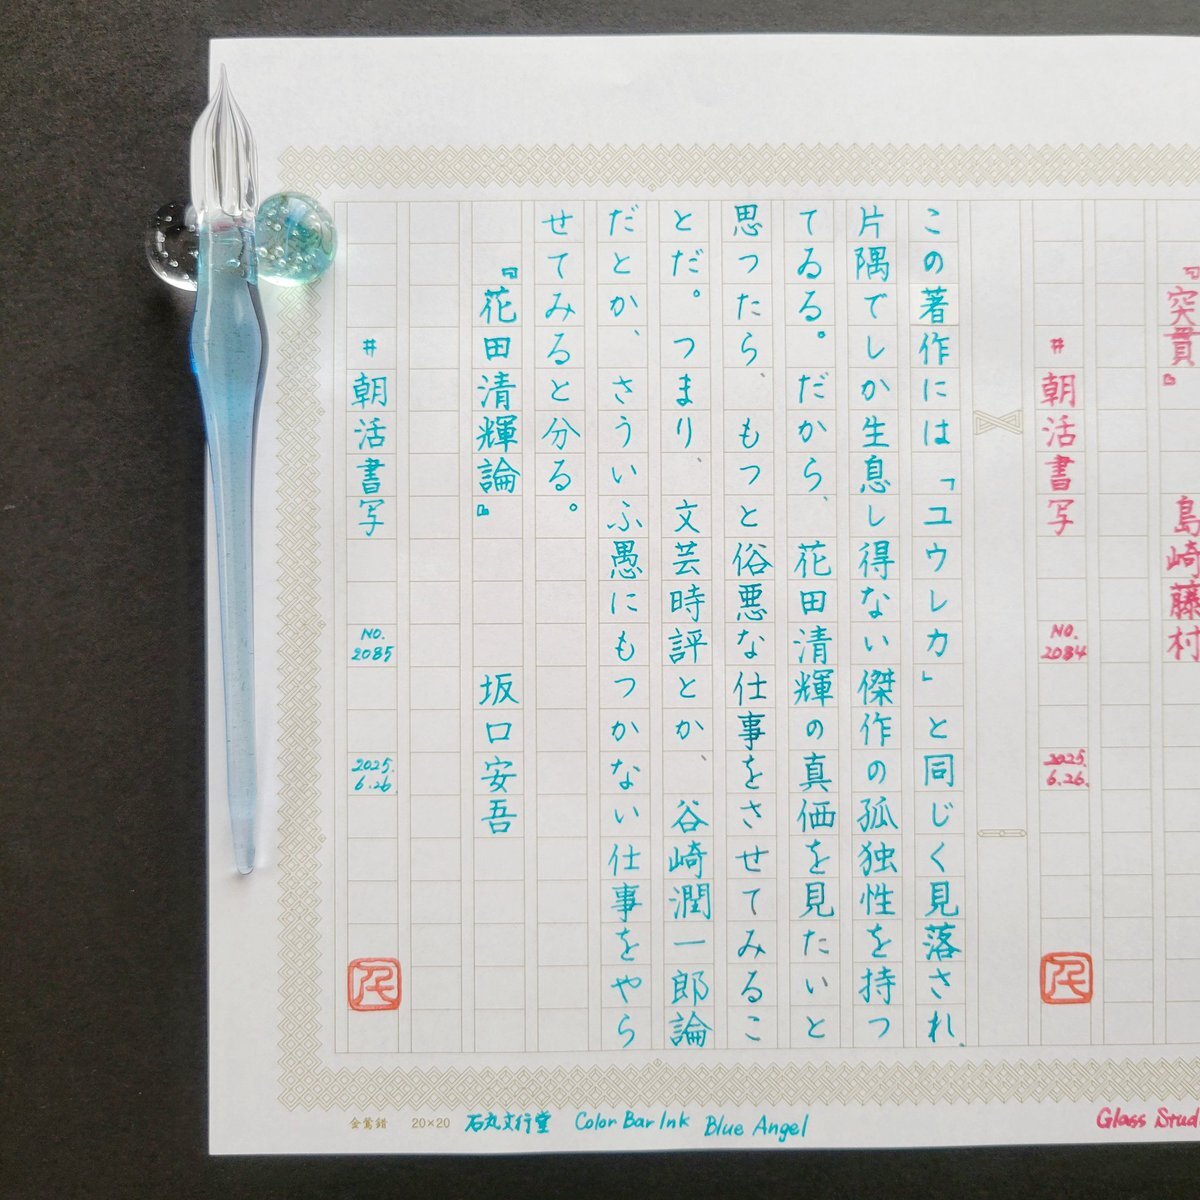 『突貫』 島崎藤村
#朝活書写 NO.2084 2025.6.26.
この著作には「ユウレカ」と同じく見落され、
片隅でしか生息し得ない傑作の孤独性を持つ
てゐる。だから、花田清輝の真価を見たいと
思つたら、もつと俗悪な仕事をさせてみるこ
とだ。つまり、文芸時評とか、谷崎潤一郎論
だとか、さういふ愚にもつかない仕事をやら
せてみると分る。
『花田清輝論』 坂口安吾
#朝活書写 NO.2085 2025.6.26.
金鶯錯 20×20 石丸文行堂 Color Bar Ink Blue Angel
Glass